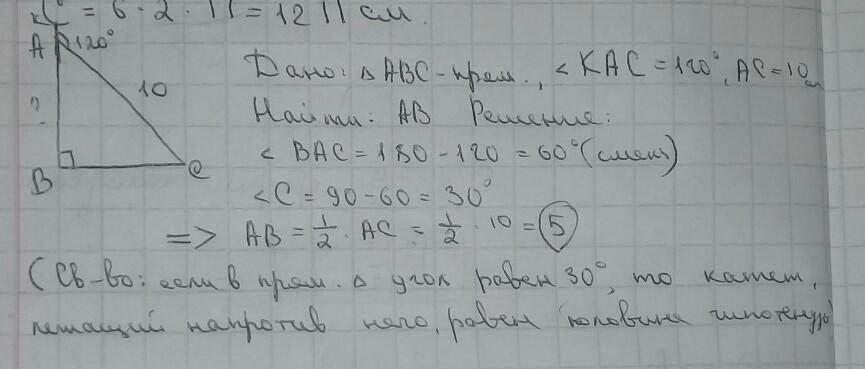 = 6 · 2 · П = 12 П см.
A 120°
10
?
B C
Дано: △ ABC - прям., < KAC = 120°, AC = 10 см
Найти: AB Решение:
< BAC = 180 - 120 = 60° (смеж)
< C = 90 - 60 = 30°
=> AB = 1/2 · AC = 1/2 · 10 = 5
(Св-во: если в прям. △ угол равен 30°, то катет,
лежащий напротив него, равен половине гипотенузы